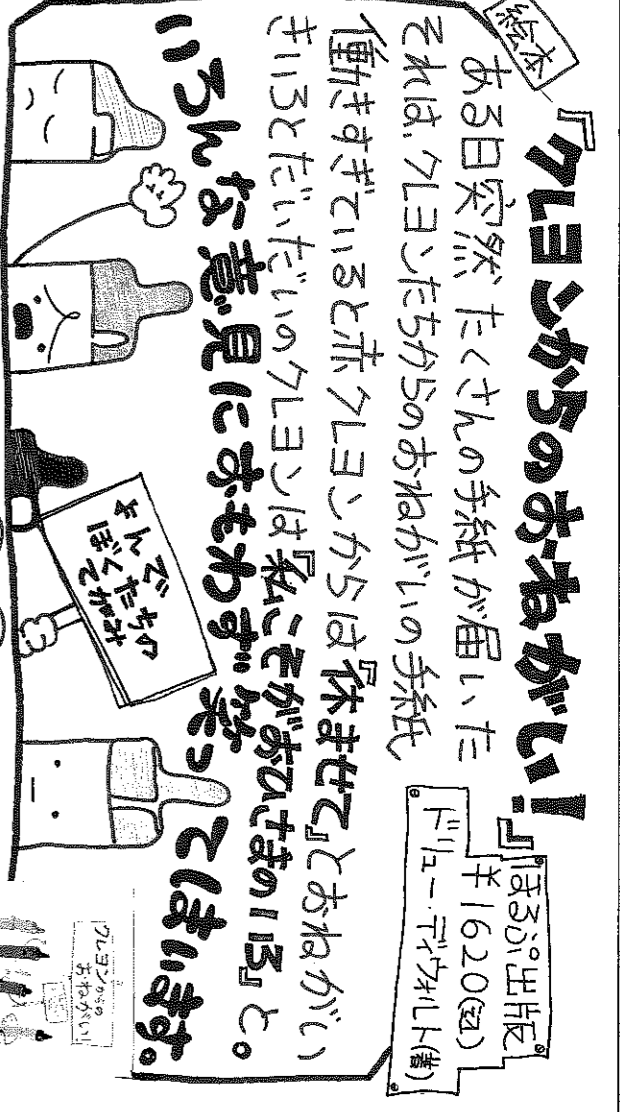 絵本
『クレヨンからのおねがい!』
ほるぷ出版
¥1620(込)
ドリュー・デイウォルト(著)
ある日突然、たくさんの手紙が届いた
それは、クレヨンたちからのおねがいの手紙
働きすぎていると赤クレヨンからは『休ませて』とおねがい
きいろとだいだいのクレヨンは『私こそがおひさまのいろ』と。
いろんな意見におもわず笑ってしまいます。
よんで
ぼくたちの
クレヨンからの
おねがい!